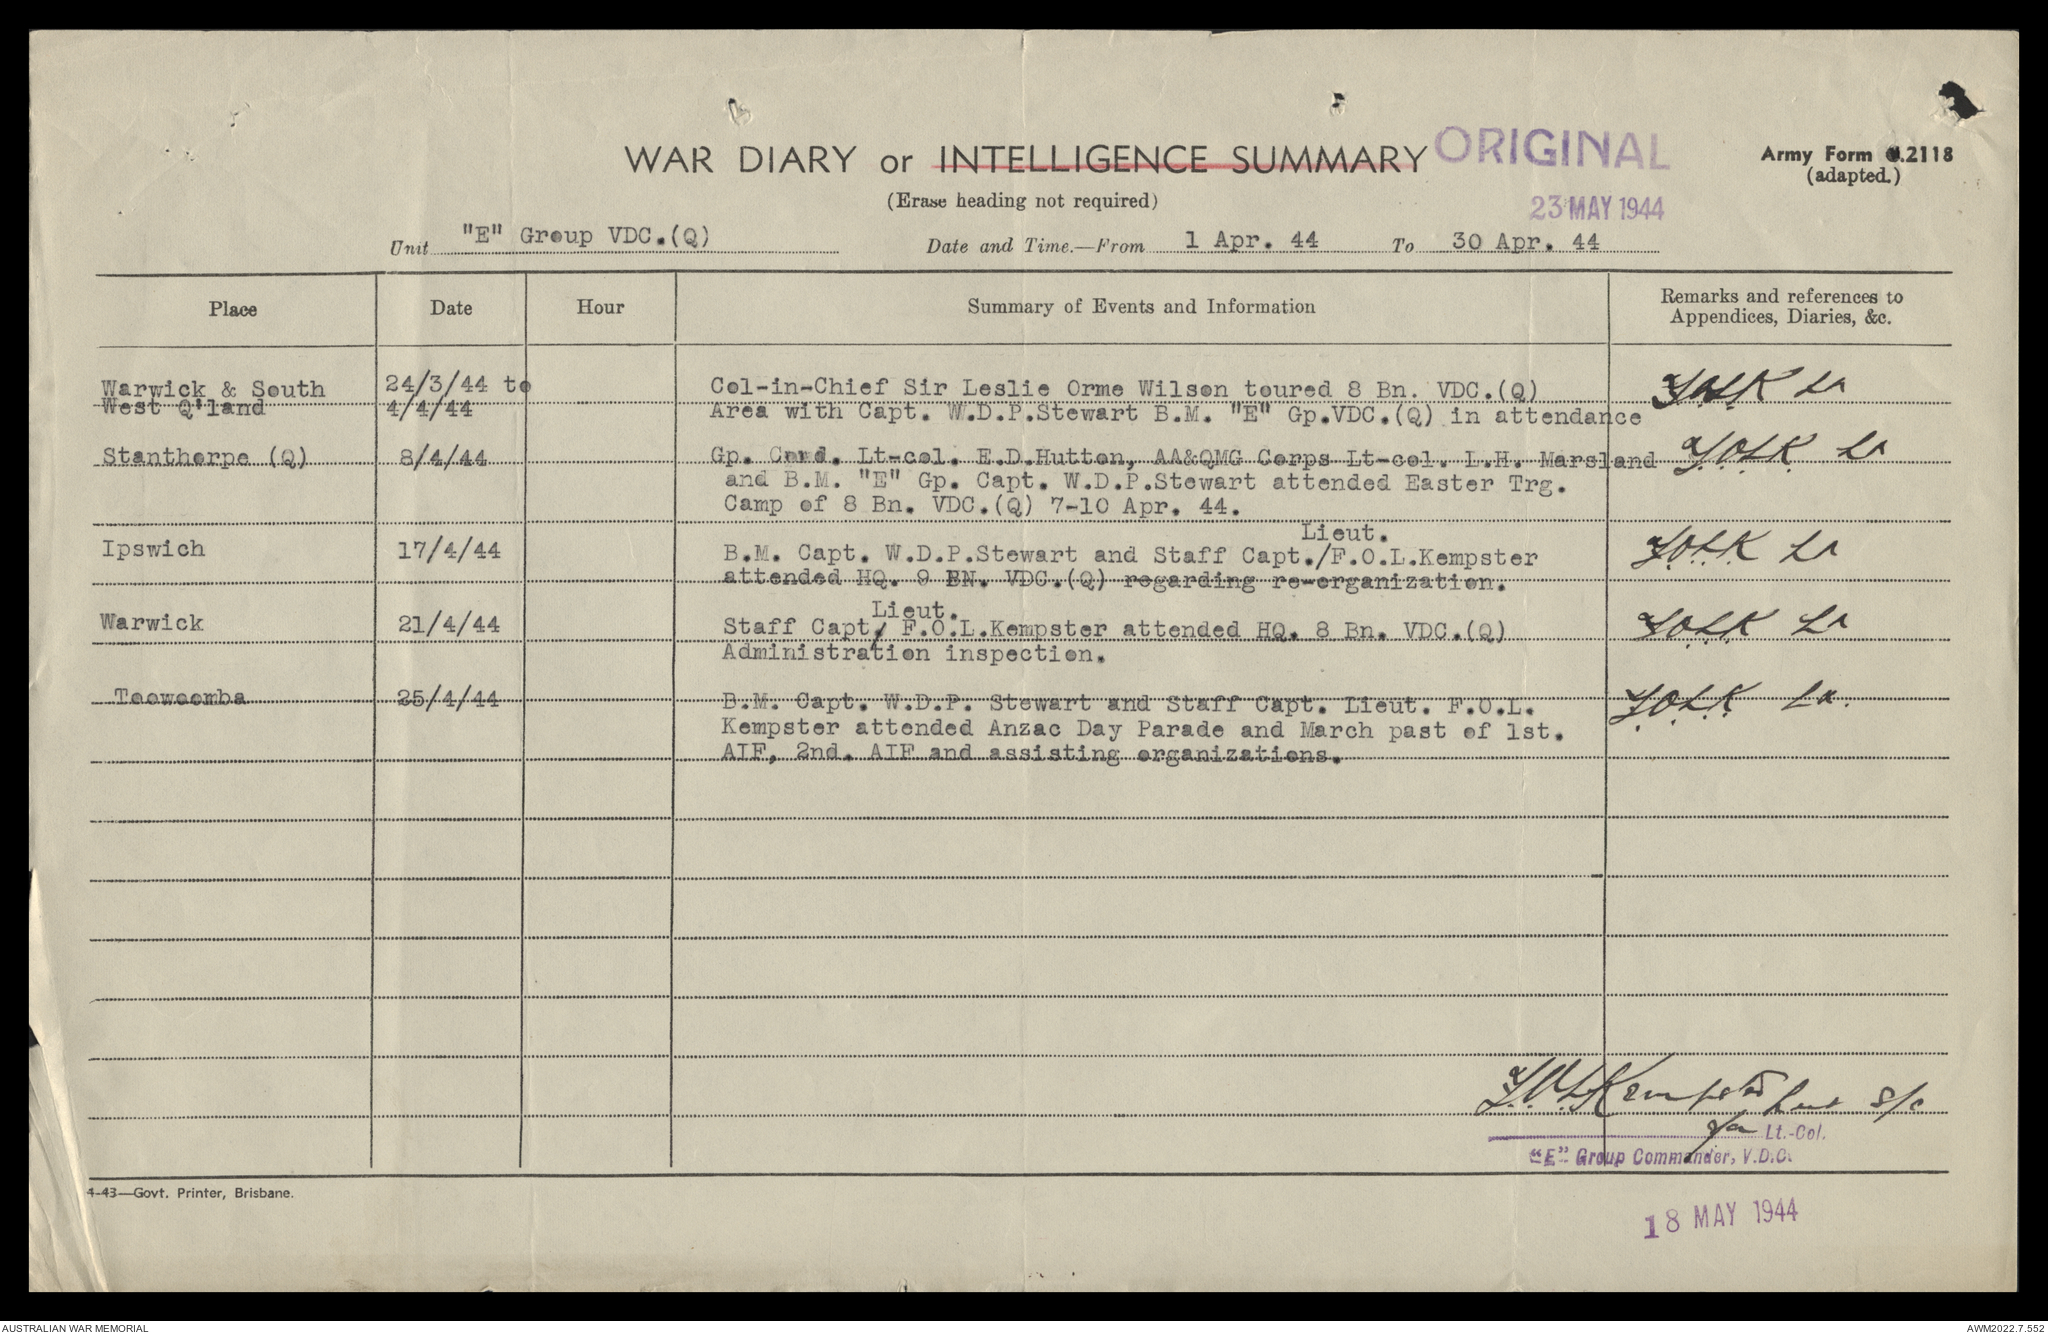 WAR DIARY or INTELLIGENCE SUMMARY
ORIGINAL
Army Form C.2118
(adapted.)
(Erase heading not required)
23 MAY 1944
Unit "E" Group VDC.(Q)
Date and Time.—From 1 Apr. 44 To 30 Apr. 44
Place Date Hour Summary of Events and Information Remarks and references to
Appendices, Diaries, &c.
Warwick & South 24/3/44 to Col-in-Chief Sir Leslie Orme Wilson toured 8 Bn. VDC.(Q) FOLK Lt
West Q'land 4/4/44 Area with Capt. W.D.P.Stewart B.M. "E" Gp.VDC.(Q) in attendance
Stanthorpe (Q) 8/4/44 Gp. Comd. Lt-col. E.D.Hutton, AA&QMG Corps Lt-col. L.H. Marsland FOLK Lt
and B.M. "E" Gp. Capt. W.D.P.Stewart attended Easter Trg.
Camp of 8 Bn. VDC.(Q) 7-10 Apr. 44.
Lieut.
Ipswich 17/4/44 B.M. Capt. W.D.P.Stewart and Staff Capt./F.O.L.Kempster FOLK Lt
attended HQ. 9 BN. VDC.(Q) regarding re-organization.
Lieut.
Warwick 21/4/44 Staff Capt/ F.O.L.Kempster attended HQ. 8 Bn. VDC.(Q) FOLK Lt
Administration inspection.
Toowoomba 25/4/44 B.M. Capt. W.D.P. Stewart and Staff Capt. Lieut. F.O.L. FOLK Lt.
Kempster attended Anzac Day Parade and March past of 1st.
AIF, 2nd. AIF and assisting organizations.
F.O.L.Kempster Lieut S/C
for Lt.-Col.
"E" Group Commander, V.D.C.
4-43—Govt. Printer, Brisbane.
18 MAY 1944
AUSTRALIAN WAR MEMORIAL
AWM2022.7.552